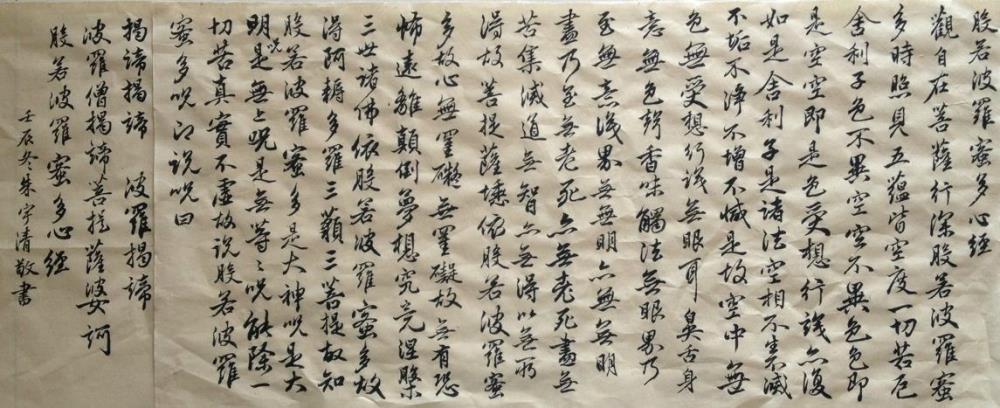 般若波羅蜜多心經
觀自在菩薩行深般若波羅蜜
多時照見五蘊皆空度一切苦厄
舍利子色不異空空不異色色即
是空空即是色受想行識亦復
如是舍利子是諸法空相不生不滅
不垢不淨不增不減是故空中無
色無受想行識無眼耳鼻舌身
意無色聲香味觸法無眼界乃
至無意識界無無明亦無無明
盡乃至無老死亦無老死盡無
苦集滅道無智亦無得以無所
得故菩提薩埵依般若波羅蜜
多故心無罣礙無罣礙故無有恐
怖遠離顛倒夢想究竟涅槃
三世諸佛依般若波羅蜜多故
得阿耨多羅三藐三菩提故知
般若波羅蜜多是大神呪是大
明呪是無上呪是無等等呪能除一
切苦真實不虛故說般若波羅
蜜多呪即說呪曰
揭諦揭諦 波羅揭諦
波羅僧揭諦菩提薩婆訶
般若波羅蜜多心經
壬辰冬朱宇清敬書